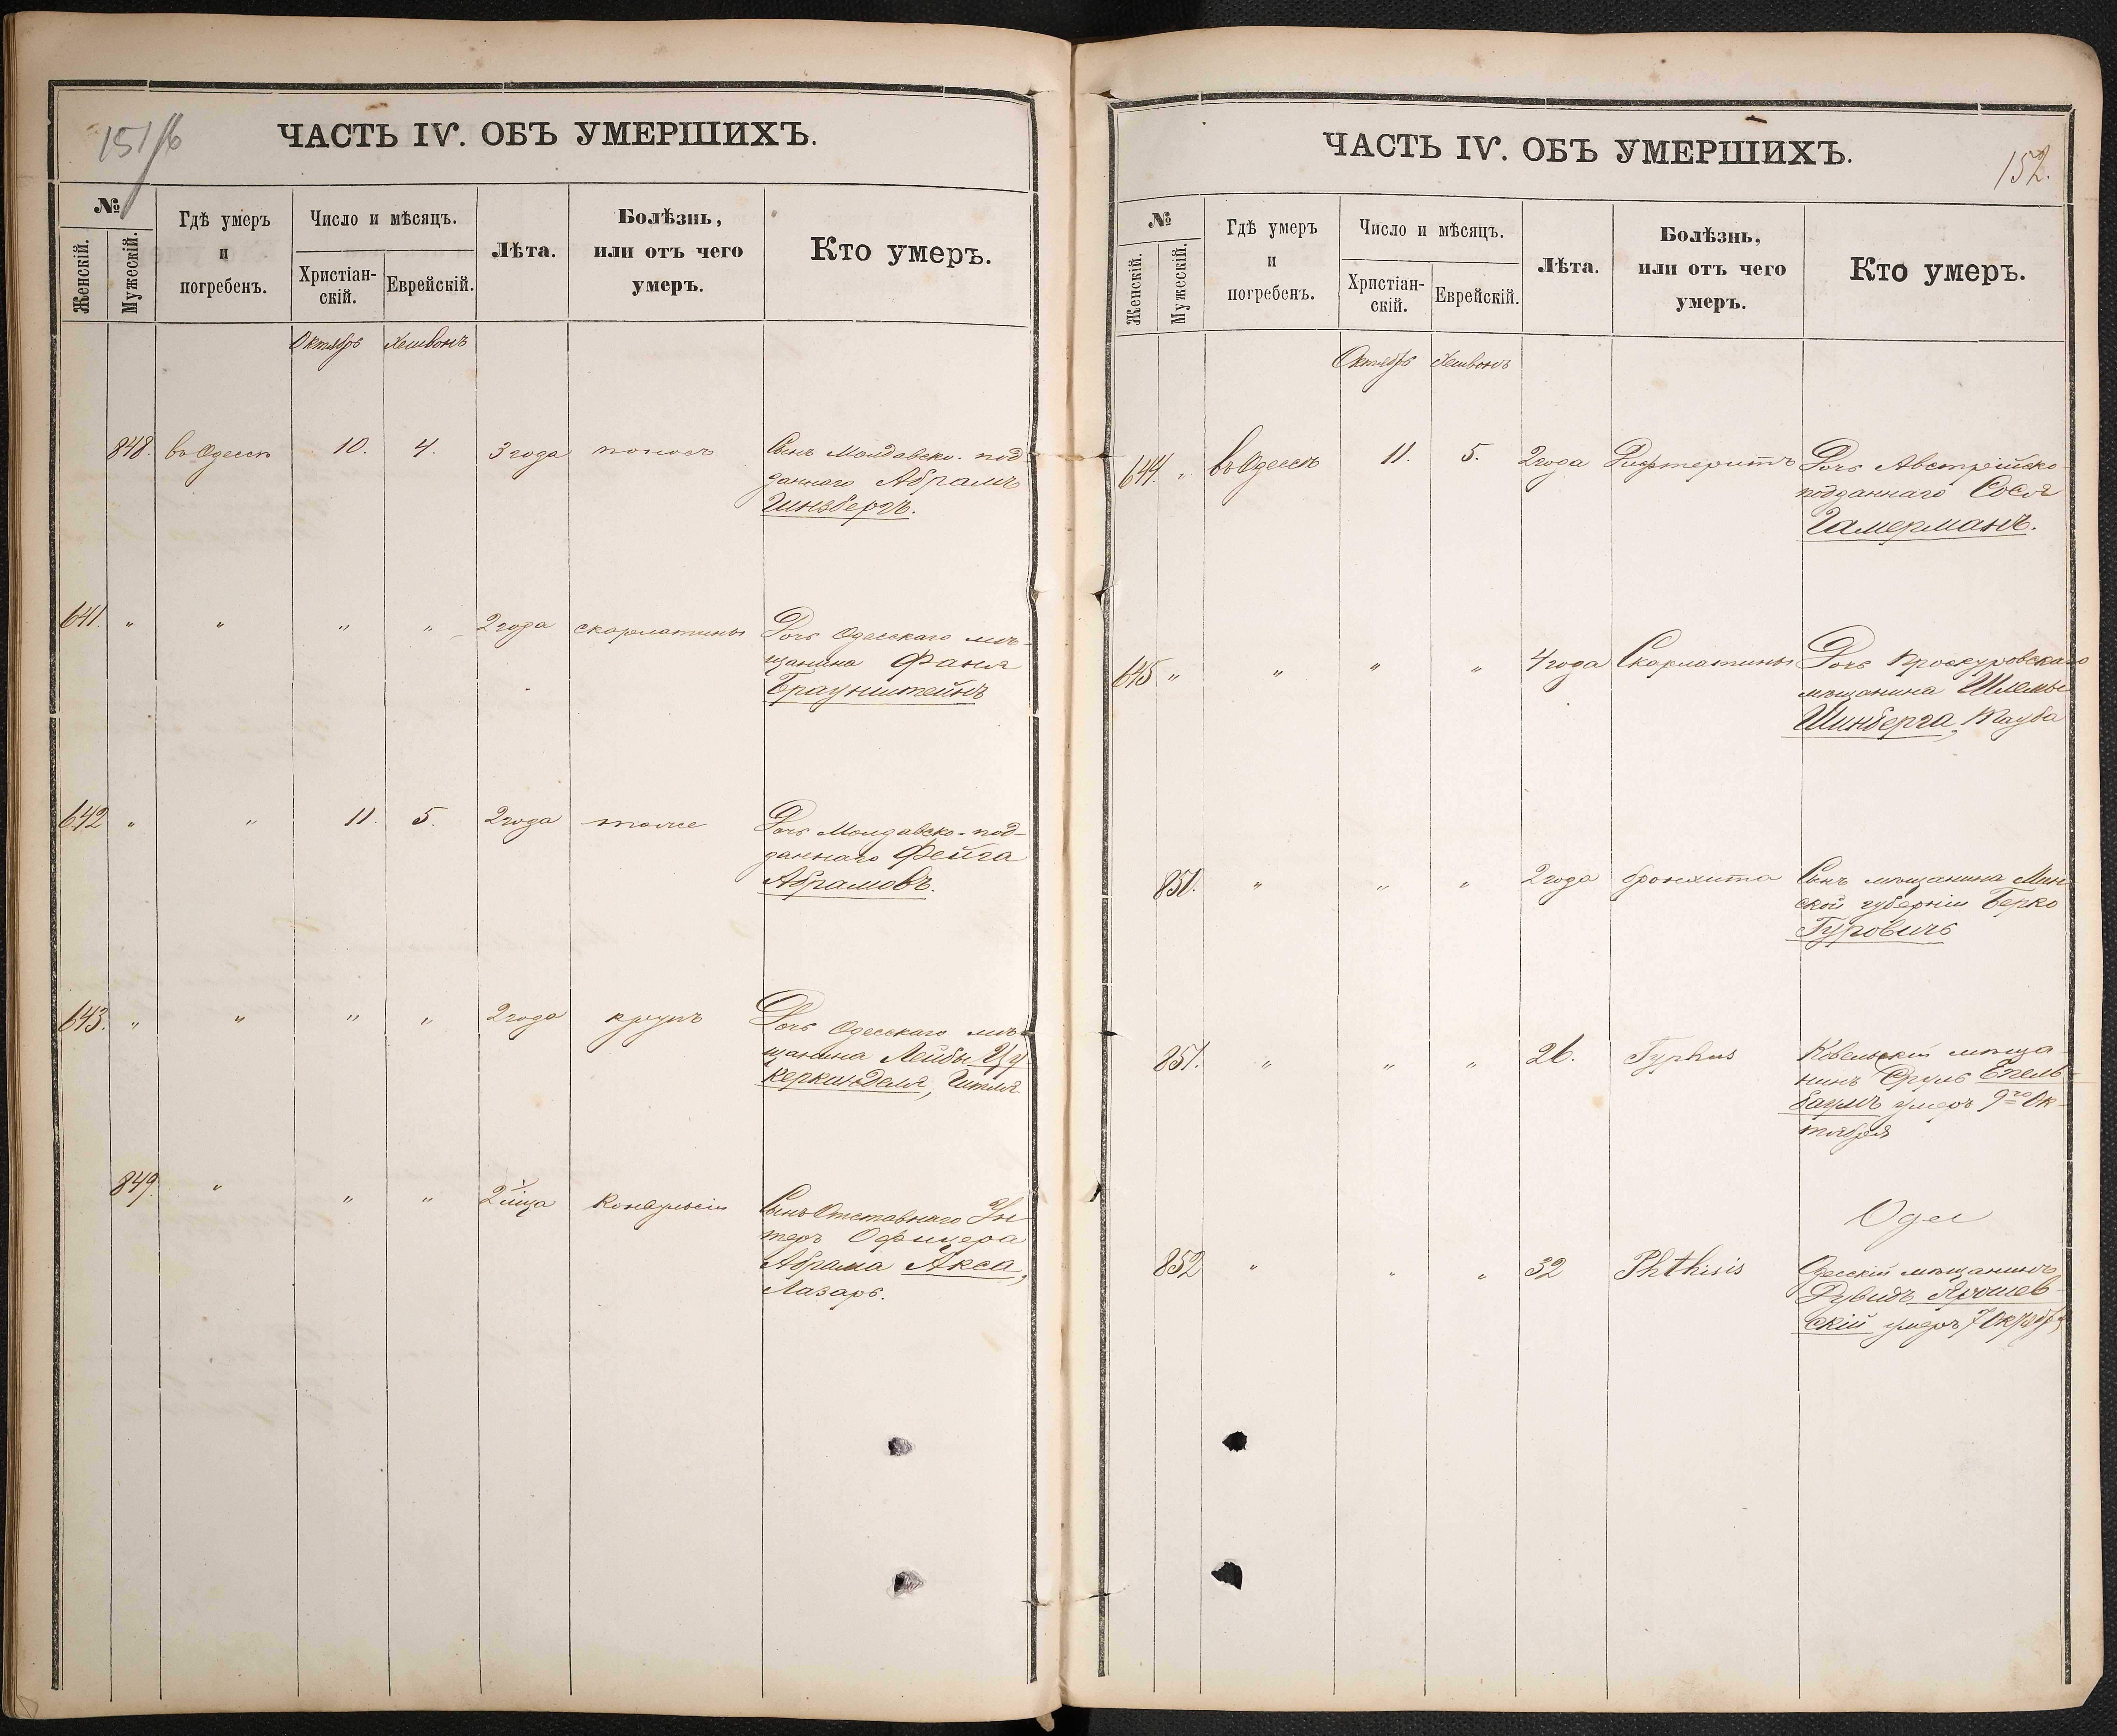 151/б
ЧАСТЬ IV. ОБЪ УМЕРШИХЪ.
№
Женскій.
Мужескій.
Гдѣ умеръ
и
погребенъ.
Число и мѣсяцъ.
Христіан-
скій.
Еврейскій.
Лѣта.
Болѣзнь,
или отъ чего
умеръ.
Кто умеръ.
Октябрь Хешвонъ
848. въ Одессѣ 10. 4. 3 года поносъ Сынъ Молдавско-под-
даннаго Абрамъ
Гинзбергъ.
641. " " " " 2 года скарлатины Дочь Одесскаго мѣ-
щанина Фаня
Браунштейнъ
642 " " 11. 5. 2 года тоже Дочь Молдавско-под-
даннаго Фейга
Абрамовъ.
643. " " " " 2 года крупъ Дочь Одесскаго мѣ-
щанина Лейбы Цу
керканделя, Гитля
849. " " " 2 м̃ца Конвульсіи Сынъ Отставнаго Ун-
теръ Офицера
Абрама Акса,
Лазарь.
152.
ЧАСТЬ IV. ОБЪ УМЕРШИХЪ.
№
Женскій.
Мужескій.
Гдѣ умеръ
и
погребенъ.
Число и мѣсяцъ.
Христіан-
скій.
Еврейскій.
Лѣта.
Болѣзнь,
или отъ чего
умеръ.
Кто умеръ.
Октябрь Хешвонъ
644. " въ Одессѣ 11. 5. 2 года Дифтеритъ Дочь Австрійско-
подданнаго Сося
Гамерманъ.
645 " " " " 4 года Скарлатины Дочь Проскуровскаго
мѣщанина Шлемы
Шинберга, Тауба
850. " " " 2 года бронхита Сынъ мѣщанина Мин
ской губерніи Берко
Гуровичъ
851. " " " 26. Typhus Ковельскій мѣща-
нинъ Сруль Епель-
баумъ умеръ 9го Ок-
тября
Одес
852 " " " 32 Phthisis Одесскій мѣщанинъ
Дувидъ Ярошев-
скій умеръ 7 Октября